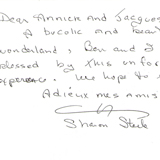 Dear Annick and Jacques
A bucolic and beau
wonderland, Ben and I
blessed by this unfor
experience. We hope to
Adieux mes amis
Sharon